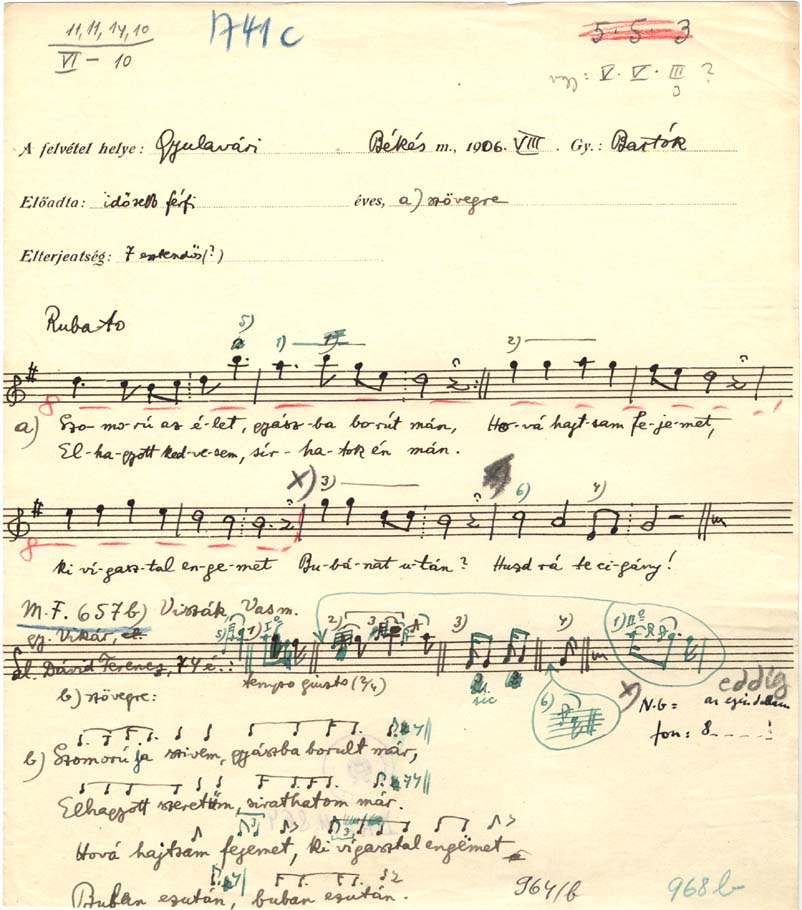 11, 11, 14, 10
VI – 10
1741 c
5 · 5 · 3
vagy: V · V · III ?
3
A felvétel helye: Gyulavári Békés m., 1906. VIII. Gy.: Bartók
Előadta: idősebb férfi éves, a) szövegre
Elterjeatség: 7 esztendős (?)
Rubato
5) 1) 2)
8
a) Szo-mo-rú az é-let, gyász-ba bo-rút mán, Ho-vá hajt-sam fe-je-met,
El-ha-gyott ked-ve-sem, sír-ha-tok én mán.
x) 3) 6) 4)
8
ki ví-gasz-tal en-ge-met Bu-bá-nat u-tán? Huzd rá te cigány!
M.F. 657b) Viszák, Vasm.
gy. Vikár,
5) 1) 2) 3) 4) 1)
él. Dávid Ferencz, 74 é.:
tempo giusto (2/4)
sic
6)
b) szövegre:
x) N.B =
eddig
fon: 8 - - - -
b) Szomorú ja szivem, gyászba borult már,
Elhagyott szeretőm, sirathatom már.
Hová hajtsam fejemet, ki vígasztal engëmet
Buban ezután, buban ezután.
964/b
968 b